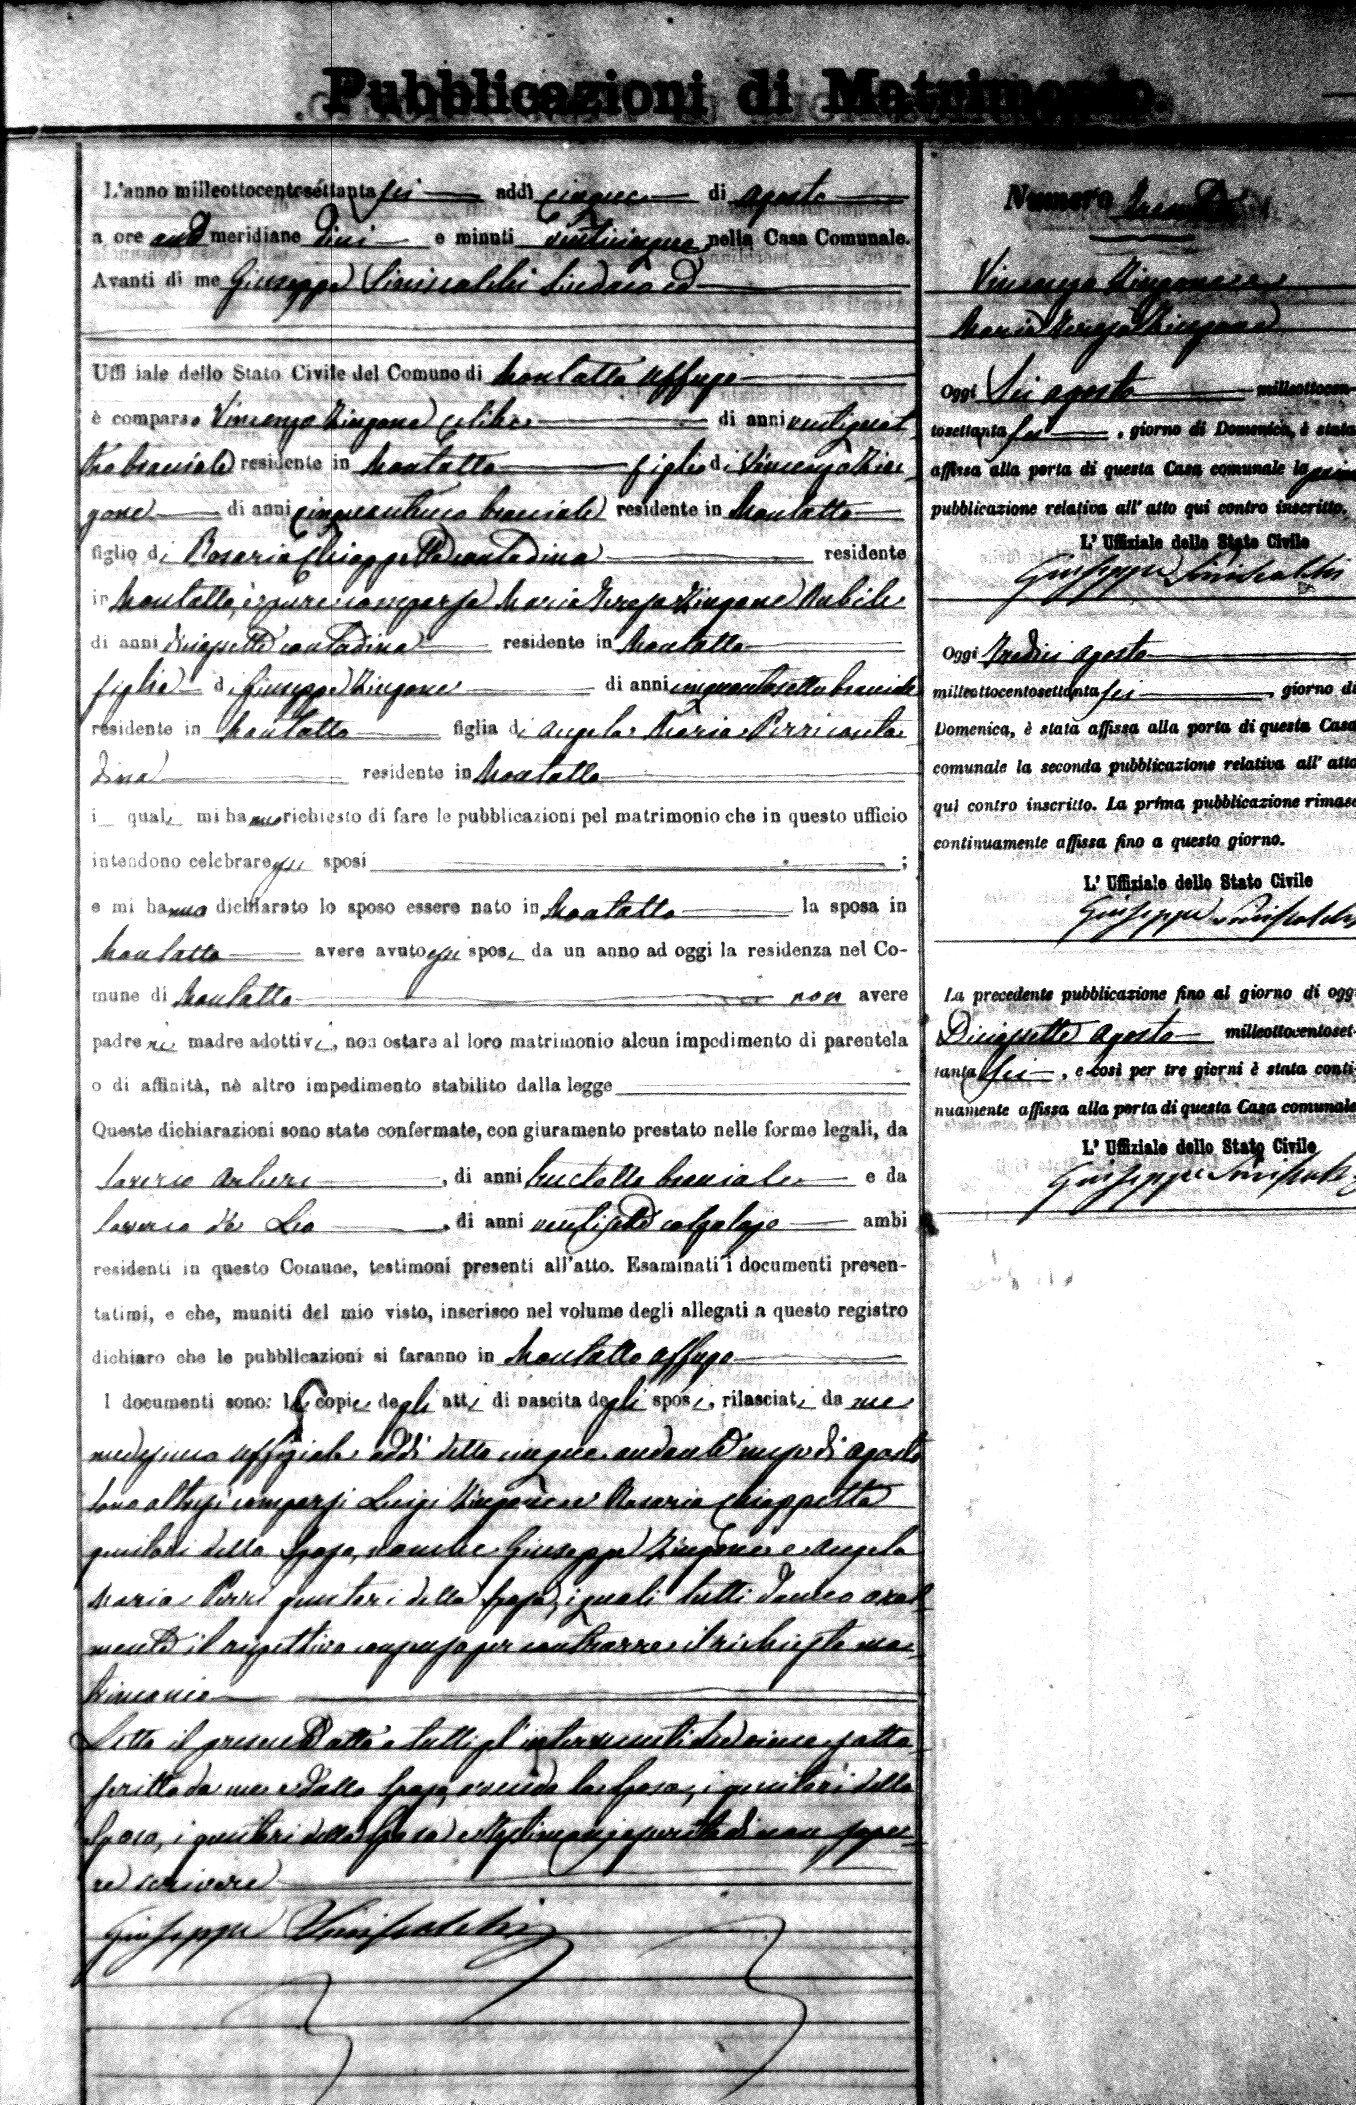 Pubblicazioni di Matrimonio.
L'anno milleottocentosettanta sei addì cinque di agosto
a ore anti meridiane dieci e minuti venticinque nella Casa Comunale.
Avanti di me Giuseppe Siniscalchi Sindaco ed
Uffi iale dello Stato Civile del Comune di Montalto Uffugo
è comparso Vincenzo Zingone celibe di anni ventiquat
tro bracciale residente in Montalto figlio di Vincenzo Zin
gone di anni cinquantuno bracciale residente in Montalto
figlio di Rosaria Chiappetta contadina residente
in Montalto, è pure comparsa Maria Teresa Zingone Nubile
di anni diciassette contadina residente in Montalto
figlia di Giuseppe Zingone di anni cinquantasette bracciale
residente in Montalto figlia di Angela Maria Perri conta
dina residente in Montalto
i quali mi hanno richiesto di fare le pubblicazioni pel matrimonio che in questo ufficio
intendono celebrare gli sposi ;
e mi hanno dichiarato lo sposo essere nato in Montalto la sposa in
Montalto avere avuto gli sposi da un anno ad oggi la residenza nel Co-
mune di Montalto non avere
padre nè madre adottivi, non ostare al loro matrimonio alcun impedimento di parentela
o di affinità, nè altro impedimento stabilito dalla legge
Queste dichiarazioni sono state confermate, con giuramento prestato nelle forme legali, da
Saverio , di anni bracciale e da
Saverio de Lio , di anni ventisette calzolajo ambi
residenti in questo Comune, testimoni presenti all'atto. Esaminati i documenti presen-
tatimi, e che, muniti del mio visto, inserisco nel volume degli allegati a questo registro
dichiaro che le pubblicazioni si faranno in Montalto Uffugo
I documenti sono: le copie degli atti di nascita degli sposi, rilasciati da me
medesimo Uffiziale addì detto cinque andante mese di agosto
sono altresì comparsi Luigi Zingone e Rosaria Chiappetta
genitori dello Sposo, nonchè Giuseppe Zingone e Angela
Maria Perri genitori della Sposa, i quali tutti danno oral
mente il rispettivo consenso per contrarre il richiesto ma-
trimonio
Letto il presente atto a tutti gl'intervenuti che viene sotto
scritto da me e dallo Sposo, avendo la Sposa, i genitori dello
Sposo, i genitori della Sposa e testimonj asserito di non sape-
re scrivere
Giuseppe Siniscalchi
Numero
Vincenzo Zingone e
Maria Teresa Zingone
Oggi Sei agosto milleottocen-
tosettanta sei , giorno di Domenica, è stata
affissa alla porta di questa Casa comunale la prima
pubblicazione relativa all'atto qui contro inscritto.
L' Uffiziale dello Stato Civile
Giuseppe Siniscalchi
Oggi Tredici agosto
milleottocentosettanta sei , giorno di
Domenica, è stata affissa alla porta di questa Casa
comunale la seconda pubblicazione relativa all' atto
qui contro inscritto. La prima pubblicazione rimase
continuamente affissa fino a questo giorno.
L' Uffiziale dello Stato Civile
Giuseppe Siniscalchi
La precedente pubblicazione fino al giorno di oggi
Diciassette agosto milleottocentoset-
tanta sei , e così per tre giorni è stata conti-
nuamente affissa alla porta di questa Casa comunale
L' Uffiziale dello Stato Civile
Giuseppe Siniscalchi